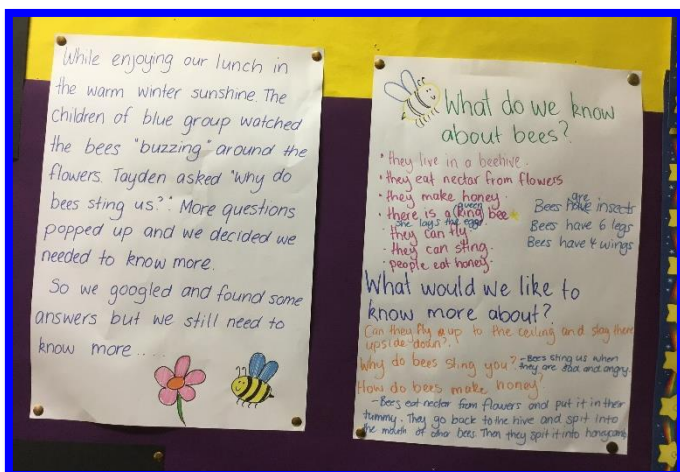 While enjoying our lunch in
the warm winter sunshine. The
children of blue group watched
the bees "buzzing" around the
flowers. Tayden asked "why do
bees sting us?" More questions
popped up and we decided we
needed to know more.
So we googled and found some
answers but we still need to
know more.....
What do we know
about bees?
• they live in a beehive.
• they eat nectar from flowers
• they make honey.
• there is a (king) bee
queen
she lays the eggs.
• they can fly
• they can sting.
• people eat honey.
are
Bees have insects
Bees have 6 legs
Bees have 4 wings
What would we like to
know more about?
Can they fly up to the ceiling and stay there
upside-down?
Why do bees sting you? - Bees sting us when
they are sad and angry.
How do bees make honey?
- Bees eat nectar from flowers and put it in their
tummy. They go back to the hive and spit into
the mouth of other bees. Then they spit it into honeycomb